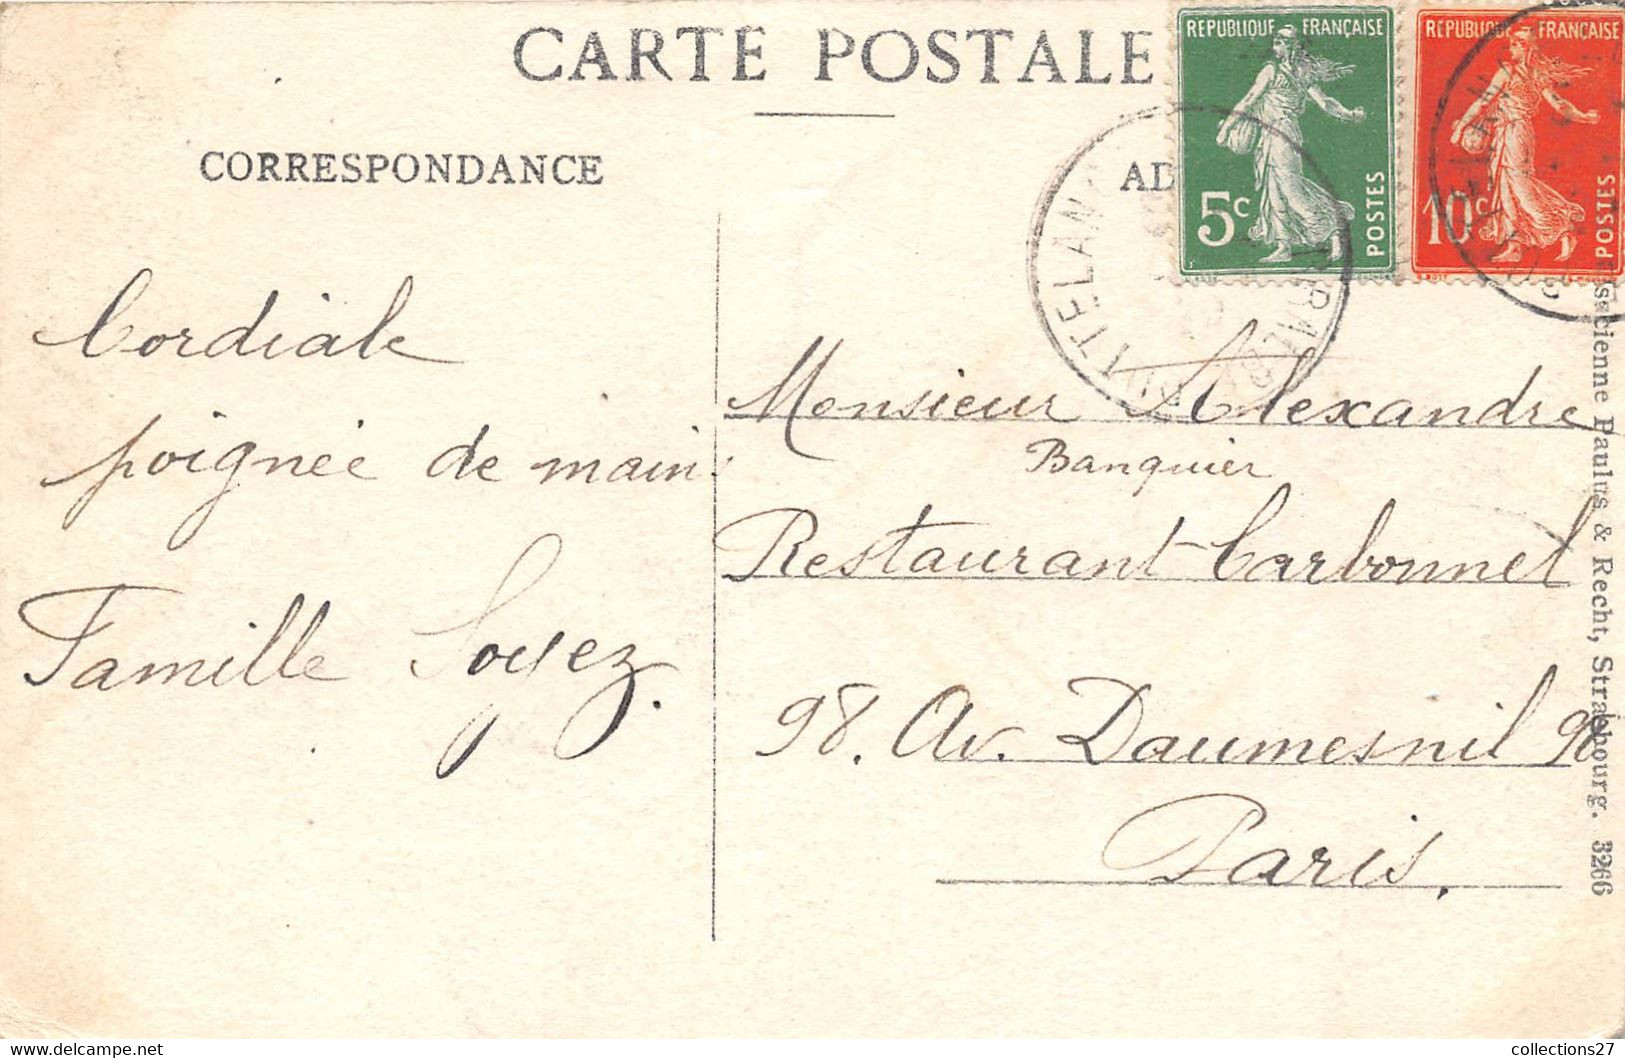 CARTE POSTALE
CORRESPONDANCE
AD
RÉPUBLIQUE FRANÇAISE
5c
POSTES
RÉPUBLIQUE FRANÇAISE
10c
POSTES
Cordiale
poignée de main
Famille Soyez.
Monsieur Alexandre
Banquier
Restaurant Carbonnel
98. Av. Daumesnil 98
Paris.
Paulus & Recht, Strasbourg. 3266
www.collections27.delcampe.net
collections27